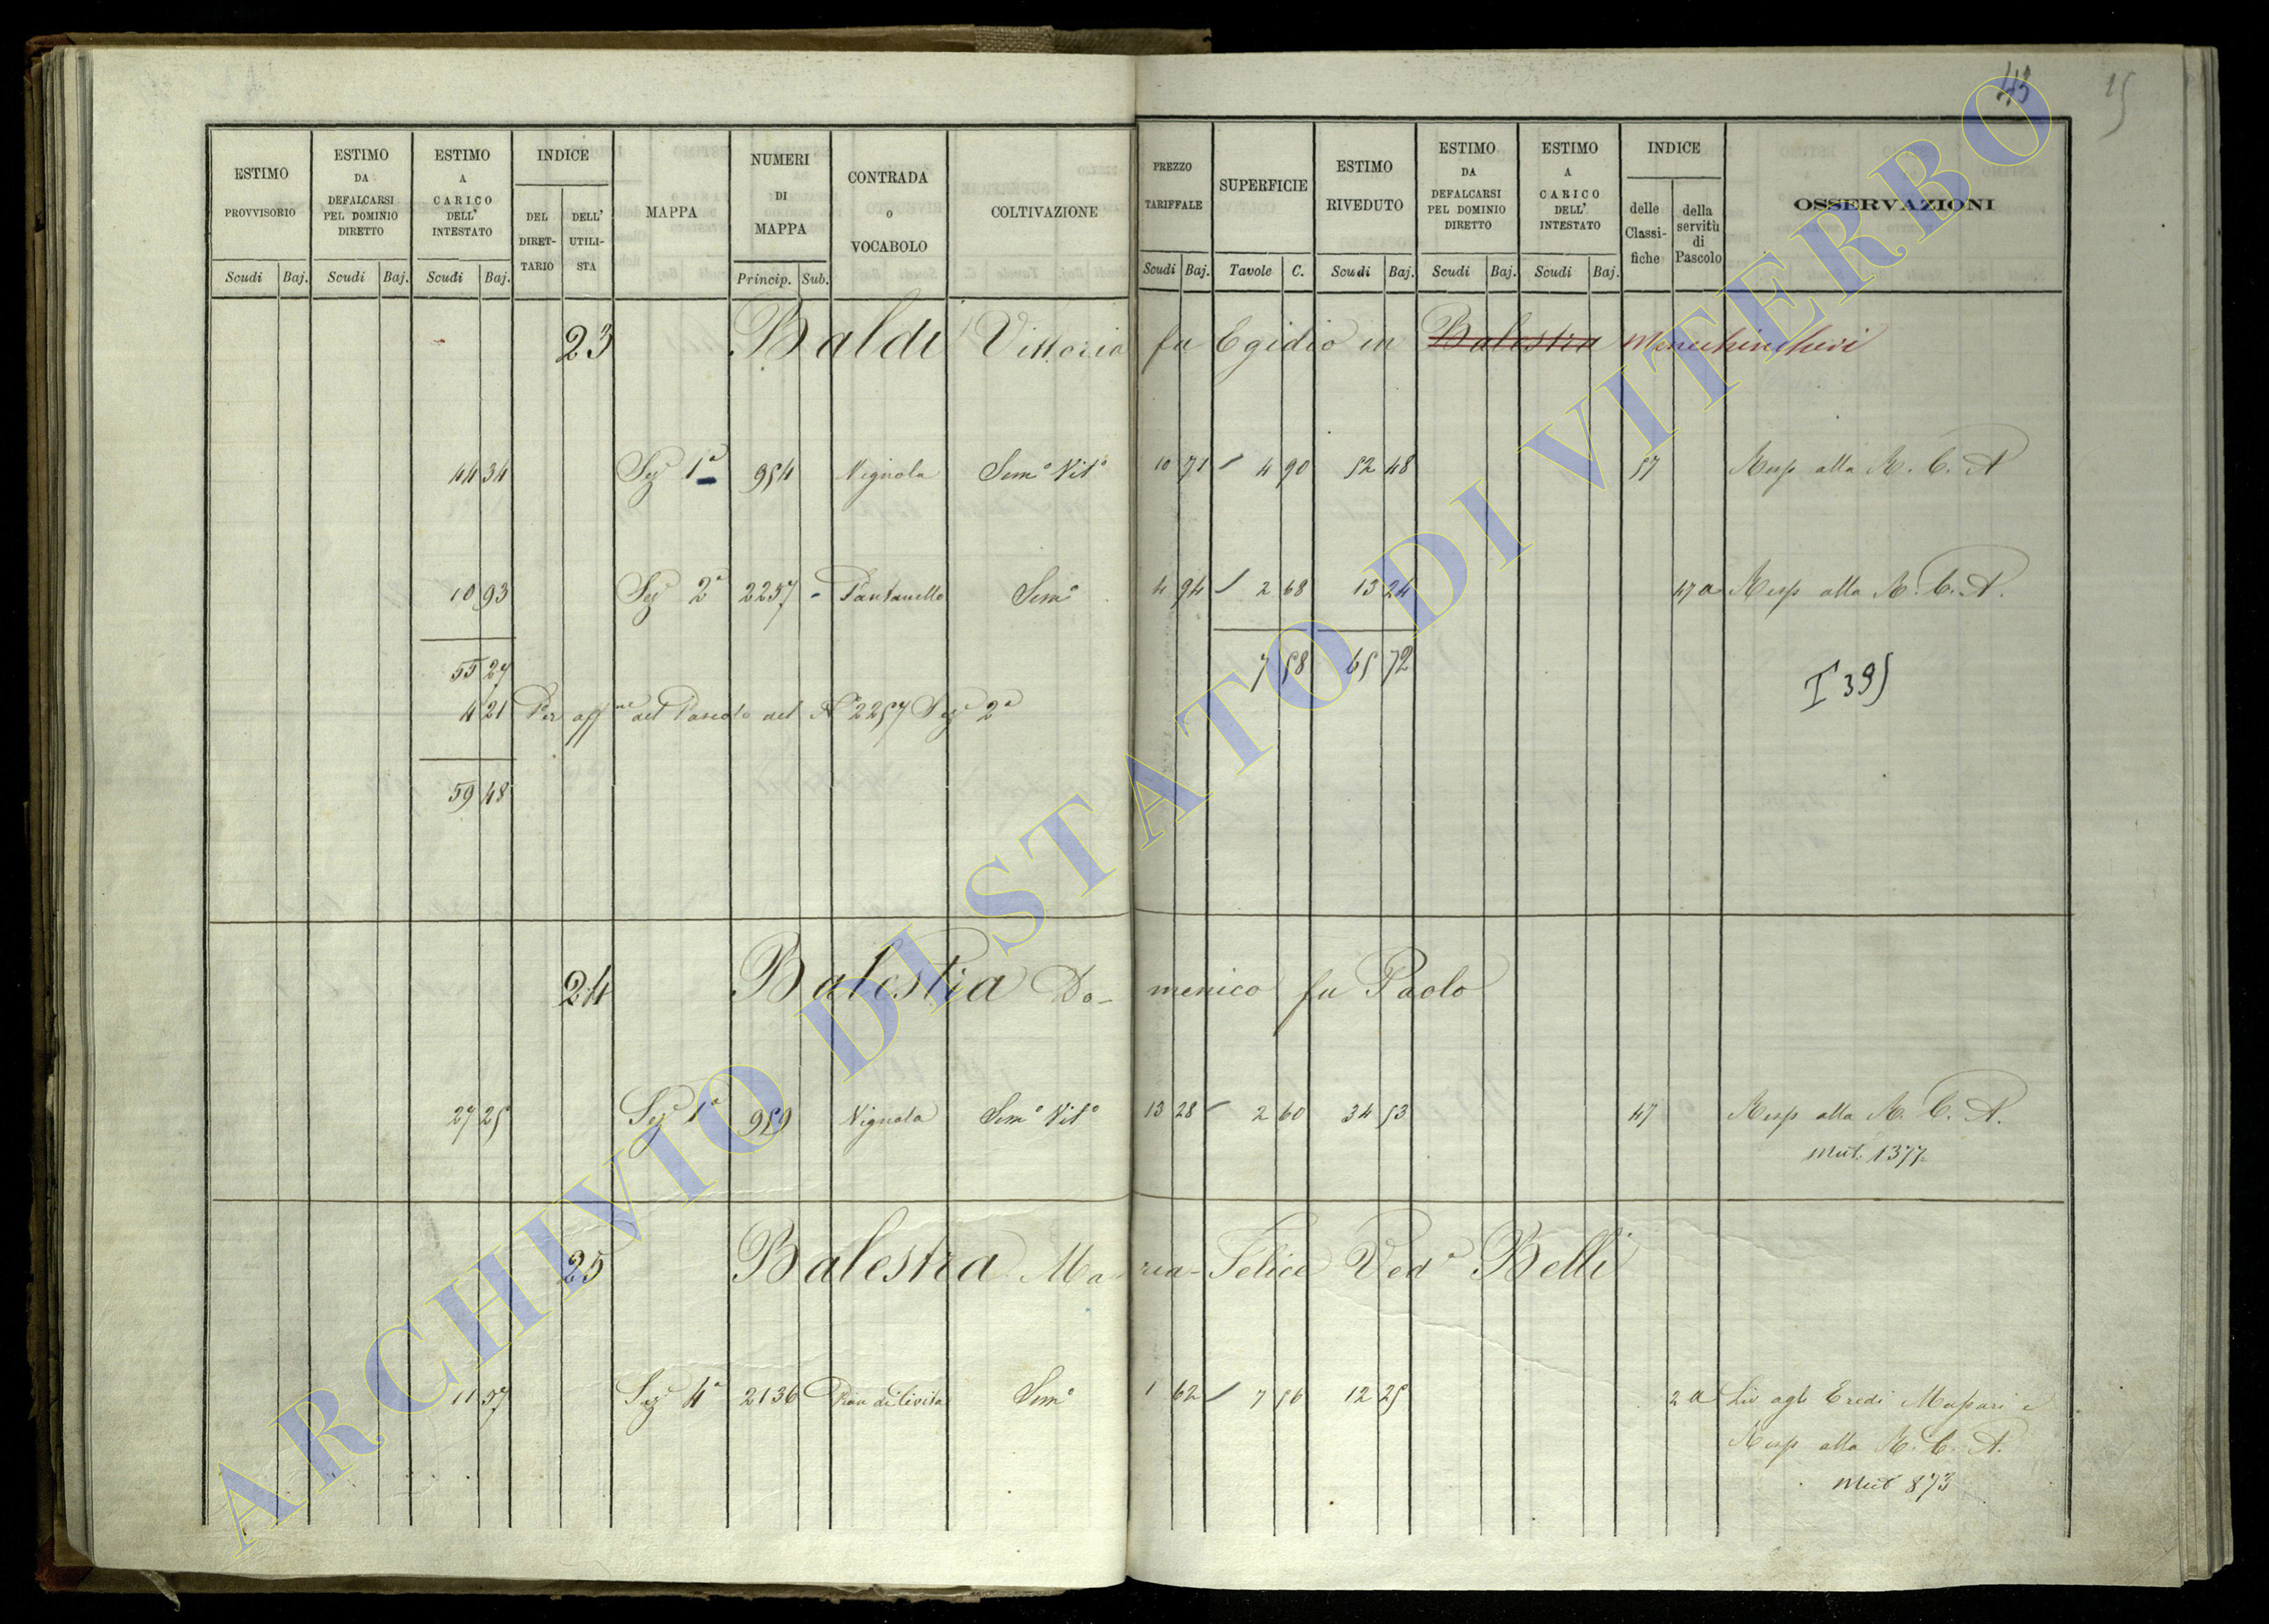 43 15
ESTIMO PROVVISORIO Scudi Baj.
ESTIMO DA DEFALCARSI PEL DOMINIO DIRETTO Scudi Baj.
ESTIMO A CARICO DELL' INTESTATO Scudi Baj.
INDICE DEL DIRET- TARIO DELL' UTILI- STA
MAPPA
NUMERI DI MAPPA Princip. Sub.
CONTRADA O VOCABOLO
COLTIVAZIONE
PREZZO TARIFFALE Scudi Baj.
SUPERFICIE Tavole C.
ESTIMO RIVEDUTO Scudi Baj.
ESTIMO DA DEFALCARSI PEL DOMINIO DIRETTO Scudi Baj.
ESTIMO A CARICO DELL' INTESTATO Scudi Baj.
INDICE delle Classi- fiche della servitù di Pascolo
OSSERVAZIONI
23 Baldi Vittoria fu Egidio in Balestra Menchincheri
44 34 Sez.e 1a 954 Vignola Sem.o Vit.o 10 71 4 90 52 48 57 Resp alla R. C. A
10 93 Sez.e 2a 2257 Pantanello Sem.o 4 94 2 68 13 24 47 a Resp alla R. C. A.
55 27 7 58 65 72
I 395
4 21 Per aff.ne del Pascolo del N 2257 Sez.e 2a
59 48
24 Balestra Do- menico fu Paolo
27 25 Sez.e 1a 959 Vignola Sem.o Vit.o 13 28 2 60 34 53 47 Resp alla R. C. A.
Mut. 1377
25 Balestra Ma- ria Felice Ved.a Belli
11 57 Sez.e 4a 2136 Pian di Civita Sem.o 1 62 7 56 12 25 2 a Liv agli Eredi Massari e
Resp alla R. C. A.
Mut 873
ARCHIVIO DI STATO DI VITERBO